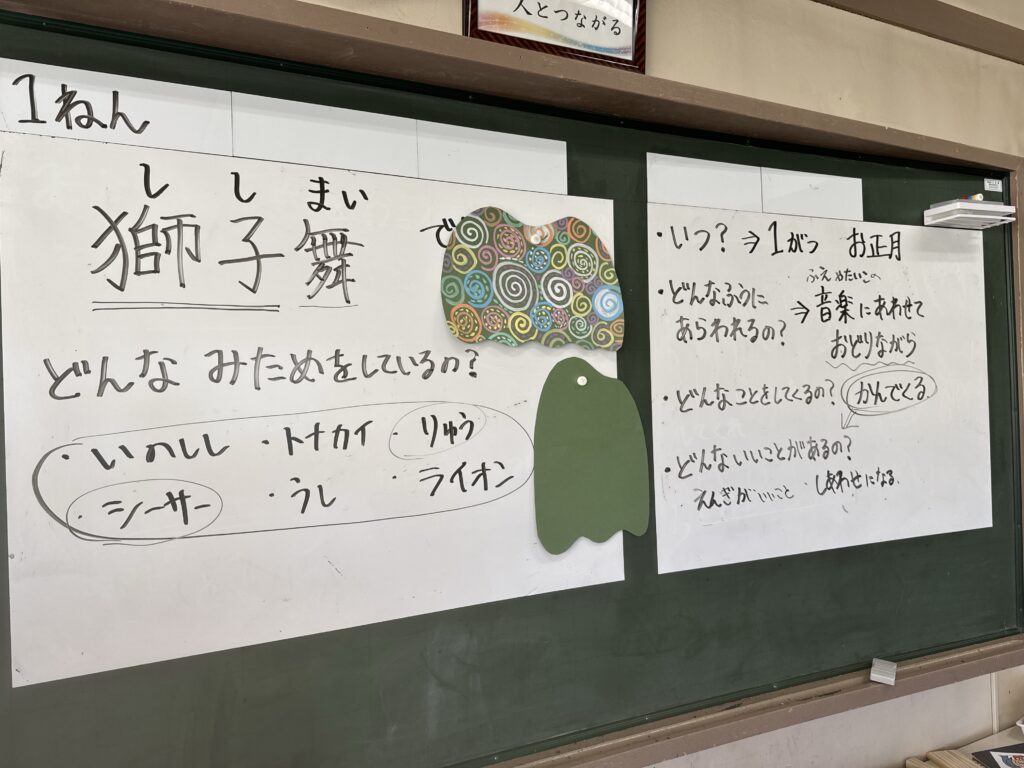 人とつながる
1ねん
し し まい
獅子舞 で
どんな みためをしているの?
・いのしし ・トナカイ ・りゅう
・シーサー ・うし ・ライオン
・いつ? ⇒ 1がつ お正月
・どんなふうに
あらわれるの?
ふえやたいこの
⇒ 音楽にあわせて
おどりながら
・どんなことをしてくるの? かんでくる
・どんないいことがあるの?
えんぎがいいこと しあわせになる。